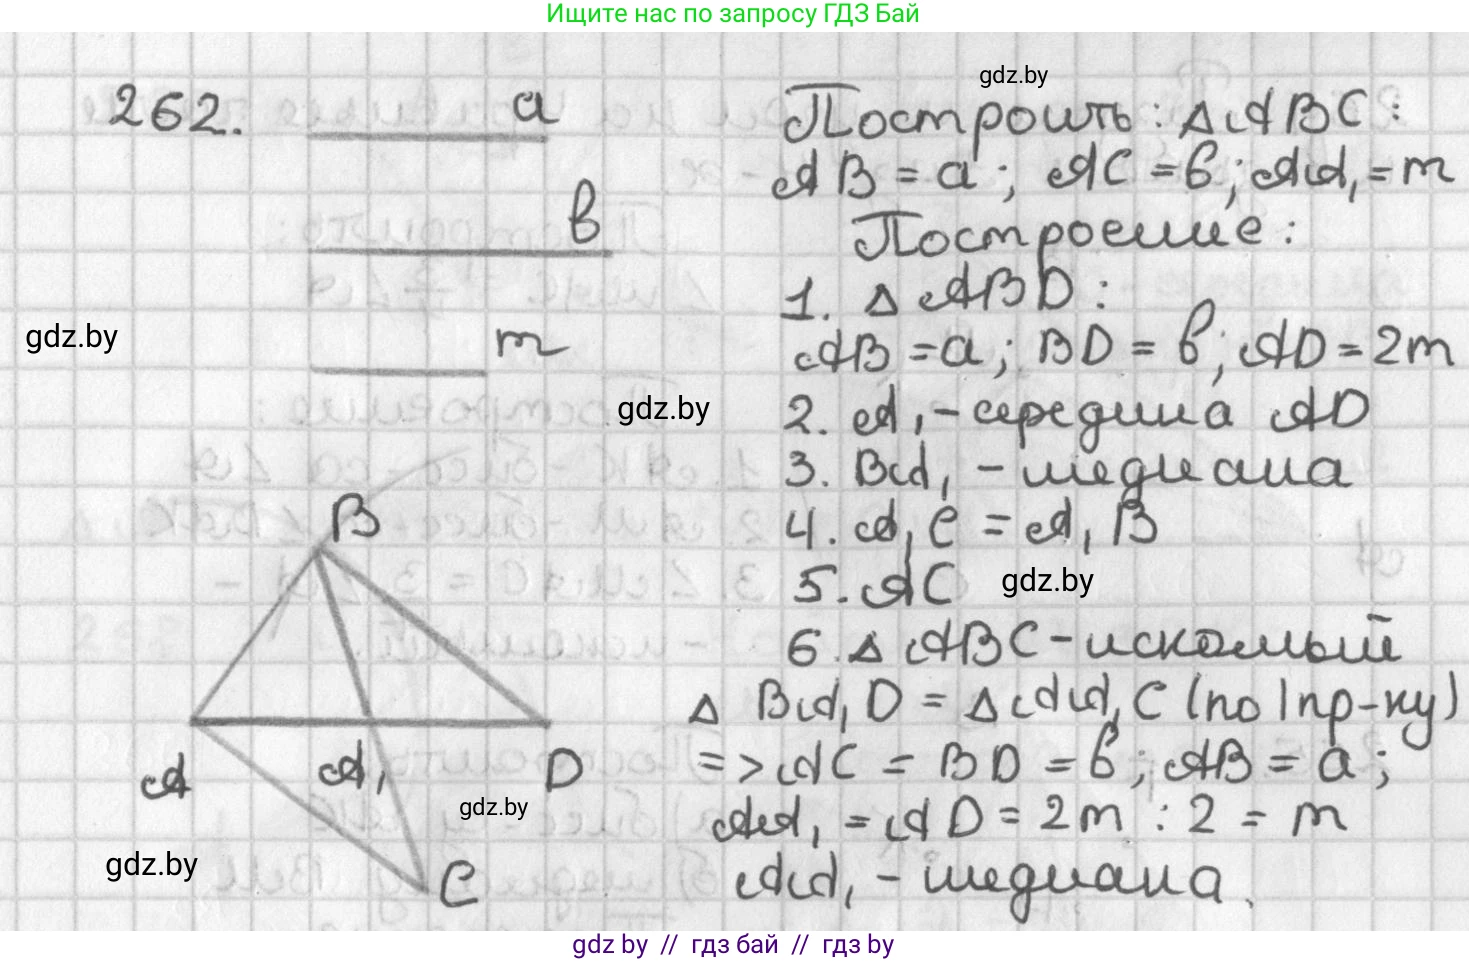 Ищите нас по запросу ГДЗ Бай
gdz.by
262.
a
в
m
gdz.by
gdz.by
B
A
A₁
D
C
gdz.by
gdz.by
Построить: △ABC:
AB = a; AC = в; AA₁ = m
Построение:
1. △ ABD:
AB = a; BD = в; AD = 2m
2. A₁ - середина AD
3. BA₁ - медиана
4. A₁C = A₁B
5. AC
gdz.by
6. △ ABC - искомый
△ BA₁D = △AA₁C (по I пр-ку)
=> AC = BD = в; AB = a;
AA₁ = AD = 2m : 2 = m
AA₁ - медиана.
gdz by // гдз бай // гдз by